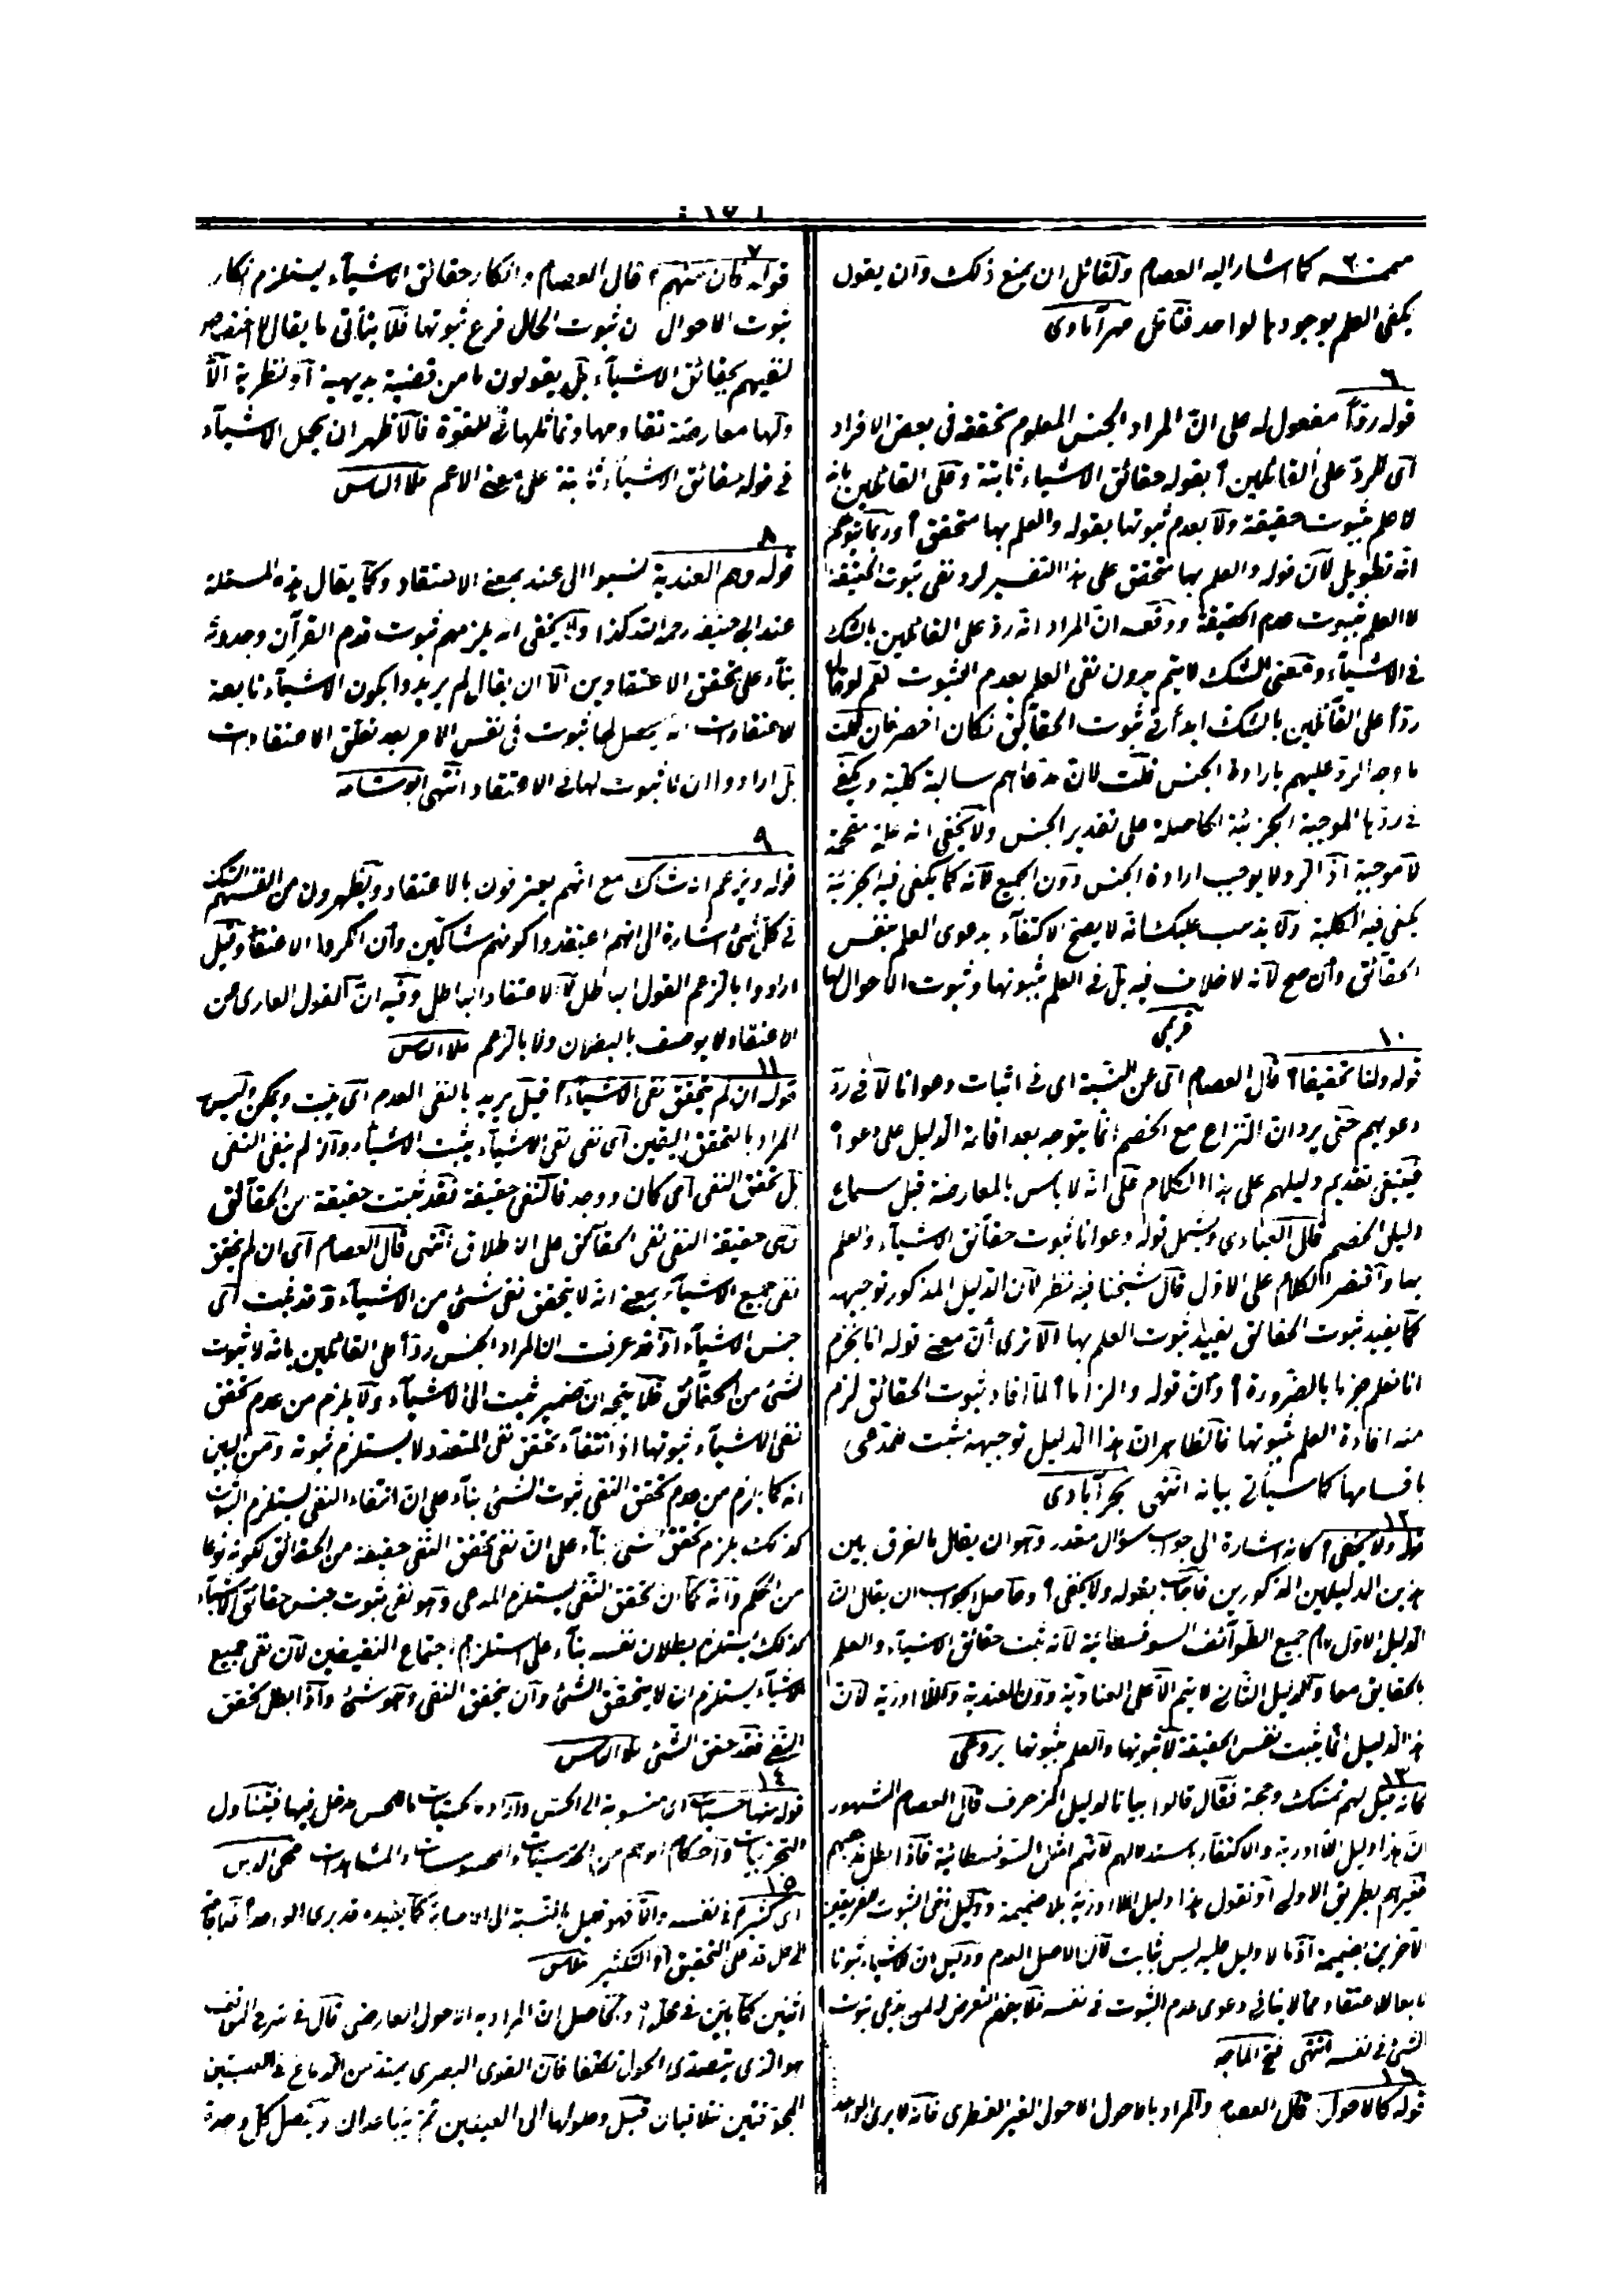 كما اشار اليه العصام ولقائل ان يمنع ذلك وان يقول
يكفى العلم بوجودها لواحد فتأمل مهرآبادى
٦
قوله ردّاً مفعول له على انّ المراد الجنس المعلوم تحققه فى بعض الافراد
اى للردّ على القائلين ؟ بقوله حقائق الاشياء ثابتة وعلى القائلين بانه
لا علم بثبوت حقيقة ولا بعدم ثبوتها بقوله والعلم بها متحقق ؟ وربما يتوهم
انه تطويل لان قوله والعلم بها متحقق على هذا التفسير لرد نفى ثبوت الحقيقة
لا العلم بثبوت عدم الحقيقة ودفعه انّ المراد انه ردّ على القائلين بالشك
فى الاشياء ومعنى الشك لا يتم بدون نفى العلم بعدم الثبوت نعم لو قال
ردّاً على القائلين بالشك ابداً فى ثبوت الحقائق لكان اخصر فان قلت
ما وجه الردّ عليهم بارادة الجنس قلت لانّ مدّعاهم سالبة كلية ويكفى
فى ردّها الموجبة الجزئية الحاصلة على تقدير الجنس ولا يخفى انه علة مصححة
لا موجبة اذ الرد لا يوجب ارادة الجنس دون الجميع لانه كما يكفى فيه الجزئية
يكفى فيه الكلية ولا يذهب عليك انه لا يصح الاكتفاء بدعوى العلم بنفس
الحقائق وان صح لانه لا خلاف فيه بل فى العلم بثبوتها وثبوت الاحوال لها
قريمى
١٠
قوله ولنا تحقيقا ؟ قال العصام اى عن النسبة اى فى اثبات دعوانا لا فى ردّ
دعويهم حتى يرد انّ النزاع مع الخصم انما يتوجه بعد اقامة الدليل على دعواه
فينبغى تقديم دليلهم على هذا الكلام على انه لا بأس بالمعارضة قبل سماع
دليل الخصم قال العبادى ويشمل قوله دعوانا ثبوت حقائق الاشياء والعلم
بها واقتصر الكلام على الاول قال شيخنا فيه نظر لان الدليل المذكور توجيهه
كما يفيد ثبوت الحقائق يفيد ثبوت العلم بها الا ترى أنّ معنى قوله انا نجزم
انا نعلم جزما بالضرورة ؟ وان قوله والزاما ؟ لما افاد ثبوت الحقائق لزم
منه افادة العلم بثبوتها فالظاهر ان هذا الدليل توجيهه يثبت
باقسامها كما سيأتى بيانه انتهى بحرآبادى
١٢
قوله ولا يخفى ؟ كانه اشارة الى جواب سؤال مقدر وهو ان يقال ما الفرق بين
هذين الدليلين المذكورين فاجاب بقوله ولا يخفى ؟ وحاصل الجواب ان يقال انّ
الدليل الاول تام جميع الطوائف السوفسطائية لانه ثبت حقائق الاشياء والعلم
بالحقايق معا والدليل الثانى لا يتم الا على العنادية دون العندية واللاادرية لانّ
هذا الدليل انما يثبت نفس الحقيقة لا ثبوتها والعلم بثبوتها بردعى
١٣
كانه قيل لهم تمسك وحجة فقال قالوا بيانا لدليل المزخرف قال العصام المشهور
انّ هذا دليل اللاادرية والاكتفاء باستدلالهم لانهم امثل السوفسطائية فاذا بطل مذهبهم
فغيرهم بطريق الاولى او نقول هذا دليل اللاادرية بلا ضميمة ودليل نفى الثبوت
الآخرين بضميمة اذ ما لا دليل عليه ليس بثابت لان الاصل العدم ودليل ان للاشياء ثبوتا
تابعا للاعتقاد مما لا ينافى دعوى عدم الثبوت فى نفسه فلا يضر التعرض له لمن يدعى ثبوت
الشئ فى نفسه انتهى فتح الماجد
١٦
قوله كالاحول قال العصام والمراد بالاحول الاحول الغير الفطرى فانه لا يرى الواحد
٧
قوله فان منهم ؟ قال العصام وانكار حقائق الاشياء يستلزم انكار
ثبوت الاحوال ن ثبوت الحال فرع ثبوتها فلا يتأتى ما يقال لا اختصاص
لنفيهم بحقائق الاشياء بل يقولون ما من قضية بديهية او نظرية الّا
ولها معارضة تقاومها وتماثلها فى القوة فالاظهر ان يجعل الاشياء
فى قوله حقائق الاشياء ثابتة على معنى الاعم ملا الياس
٨
قوله وهم العندية نسبوا الى عند بمعنى الاعتقاد وكما يقال هذه المسئلة
عند ابى حنيفة رحمه الله كذا ولا يخفى انه يلزمهم ثبوت قدم القرآن وحدوثه
بناء على تحقق الاعتقادين الا ان يقال لم يريدوا بكون الاشياء تابعة
للاعتقادات انه يحصل لها ثبوت فى نفس الامر بعد تعلق الاعتقادات
بل ارادوا ان لا ثبوت لها فى الاعتقاد انتهى ابو شامه
٩
قوله ويزعم انه شاك مع انهم يعترفون بالاعتقاد ويظهرون من انفسهم الشك
فى كل شئ اشارة الى انهم اعتقدوا كونهم شاكين وان انكروا الاعتقاد وقيل
ارادوا بالزعم القول الباطل لا الاعتقاد الباطل وفيه انّ القول العارى عن
الاعتقاد لا يوصف بالبطلان ولا بالزعم ملا الياس
١١
قوله ان لم يتحقق نفى الاشياء ؟ قيل يريد بالنفى العدم اى يثبت ويمكن
المراد بالتحقق اليقين اى نفى نفى الاشياء يثبت الاشياء وان لم ينفى النفى
بل تحقق النفى اى كان ووجد فالنفى حقيقة فقد ثبتت حقيقة من الحقائق
وهى حقيقة النفى نفى الحقائق على الاطلاق انتهى قال العصام اى ان لم يتحقق
نفى جميع الاشياء بمعنى انه لا يتحقق نفى شئ من الاشياء وقد ثبت اى
جنس الاشياء اذ قد عرفت ان المراد الجنس ردّاً على القائلين بانه لا ثبوت
لشئ من الحقائق فلا يتجه ان ضمير ثبت الى الاشياء ولا يلزم من عدم تحقق
نفى الاشياء ثبوتها اذ انتفاء تحقق نفى المتعدد لا يستلزم ثبوته ومن البين
انه كما يلزم من عدم تحقق النفى ثبوت الشئ بناء على انّ انتفاء النفى يستلزم الثبوت
كذلك يلزم تحقق شئ بناء على ان نفى تحقق النفى حقيقة من الحقائق لكونه نوعا
من الحكم وانه كما ان تحقق النفى يستلزم المدعى وهو نفى ثبوت جنس حقائق الاشياء
كذلك يستلزم بطلان نفسه بناء على استلزام اجتماع النقيضين لان نفى جميع
الاشياء يستلزم ان لا يتحقق الشئ وان يتحقق النفى وهو شئ واذا بطل تحقق
النفى فقد تحقق الشئ ملا الياس
١٤
قوله منها حسيات اى منسوبة الى الحس واراده بحسيات ما للحس مدخل فيها فيتناول
التجربيات واحكام الوهم من الحدسيات والمحسوسات والمشاهدات محى الدين
١٥
اى كثير فى نفسه والا فهو قليل بالنسبة الى الاصابة كما يفيده قد يرى الواحد
حمل قد على التحقيق او التكثير ملاس
اثنين كما بيّن فى محله ؟ والحاصل انّ المراد به الاحول العارضى قال فى شرح المواقف
هو الذى يتصدى الحول تكلفا فان القوى البصرى يمتد من الدماغ فى العصبتين
المجوفتين تتلاقيان قبل وصولها الى العينين ثم يتباعدان ويتصل كل واحدة